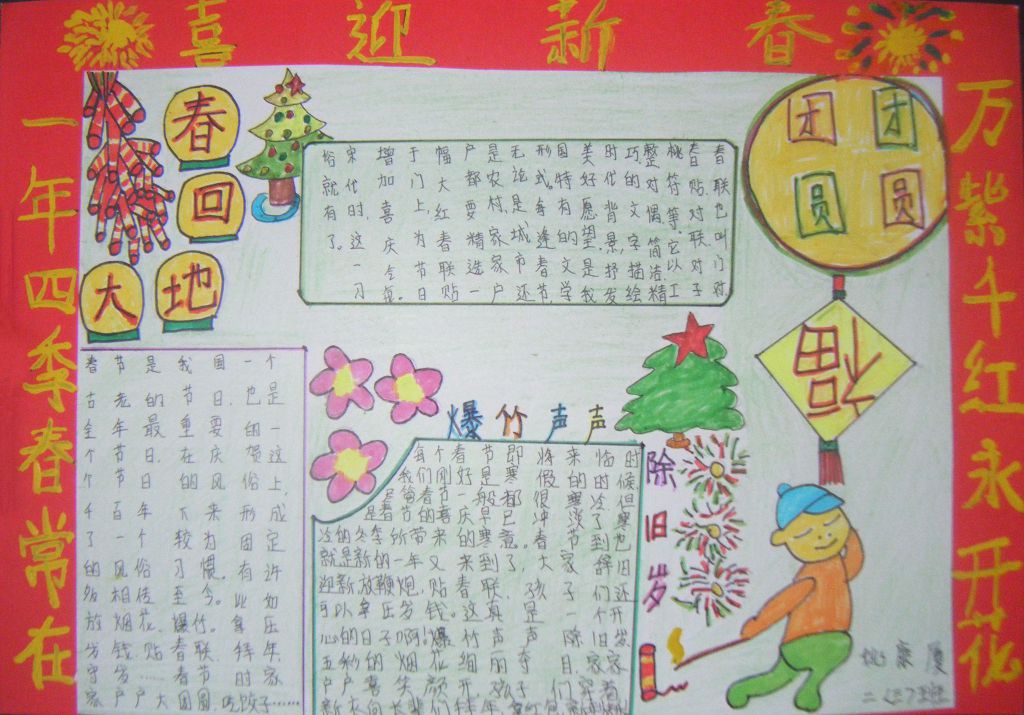 喜迎新春
一年四季春常在
万紫千红永开花
春回大地
团团圆圆
福
春联也叫门对
春贴、对联、对子
桃符等,它以工
整对偶、简洁精
巧的文字描绘
时代背景,抒发
美好愿望,是我
国特有的文学
形式。每逢春节,
无论是城市还
是农村,家家户
户都要精选一
幅大红春联贴
于门上,为节日
增加喜庆气氛。
宋代时,这一习
俗就有了。
春节是我国一个
古老的节日,也是
全年最重要的一
个节日,在庆贺这
个节日的风俗上,
千百年下来形成
了一个较为固定
的风俗习惯。有许
多相传至今。比如
放烟花、爆竹。拿压
岁钱、贴春联、拜年,
守岁……春节时家
家户户大团圆,吃饺子……
爆竹声声
除旧岁
每个春节即将来临时
我们刚好是寒假的时候,
尽管春节一般都很寒冷,但
是春节的喜庆早已冲淡了寒
冷的冬季所带来的寒意。春节到也
就是新的一年又来到了,大家辞旧
迎新放鞭炮,贴春联,孩子们还
可以拿压岁钱。这真是一个开
心的日子啊!爆竹声声除旧岁
五彩的烟花绚丽夺目,家家
户户喜笑颜开,孩子们穿着
新衣向长辈们拜年,拿红包
姚康厦
二(7)班